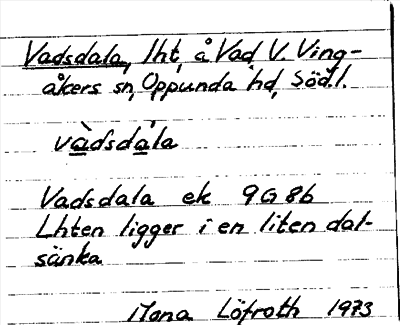 Vadsdala, lht, å Vad V. Ving-
åkers sn, Oppunda hd, Söd.l.
vàdsdála
Vadsdala ek 9G8b
Lhten ligger i en liten dal-
sänka
Mona Löfroth 1973